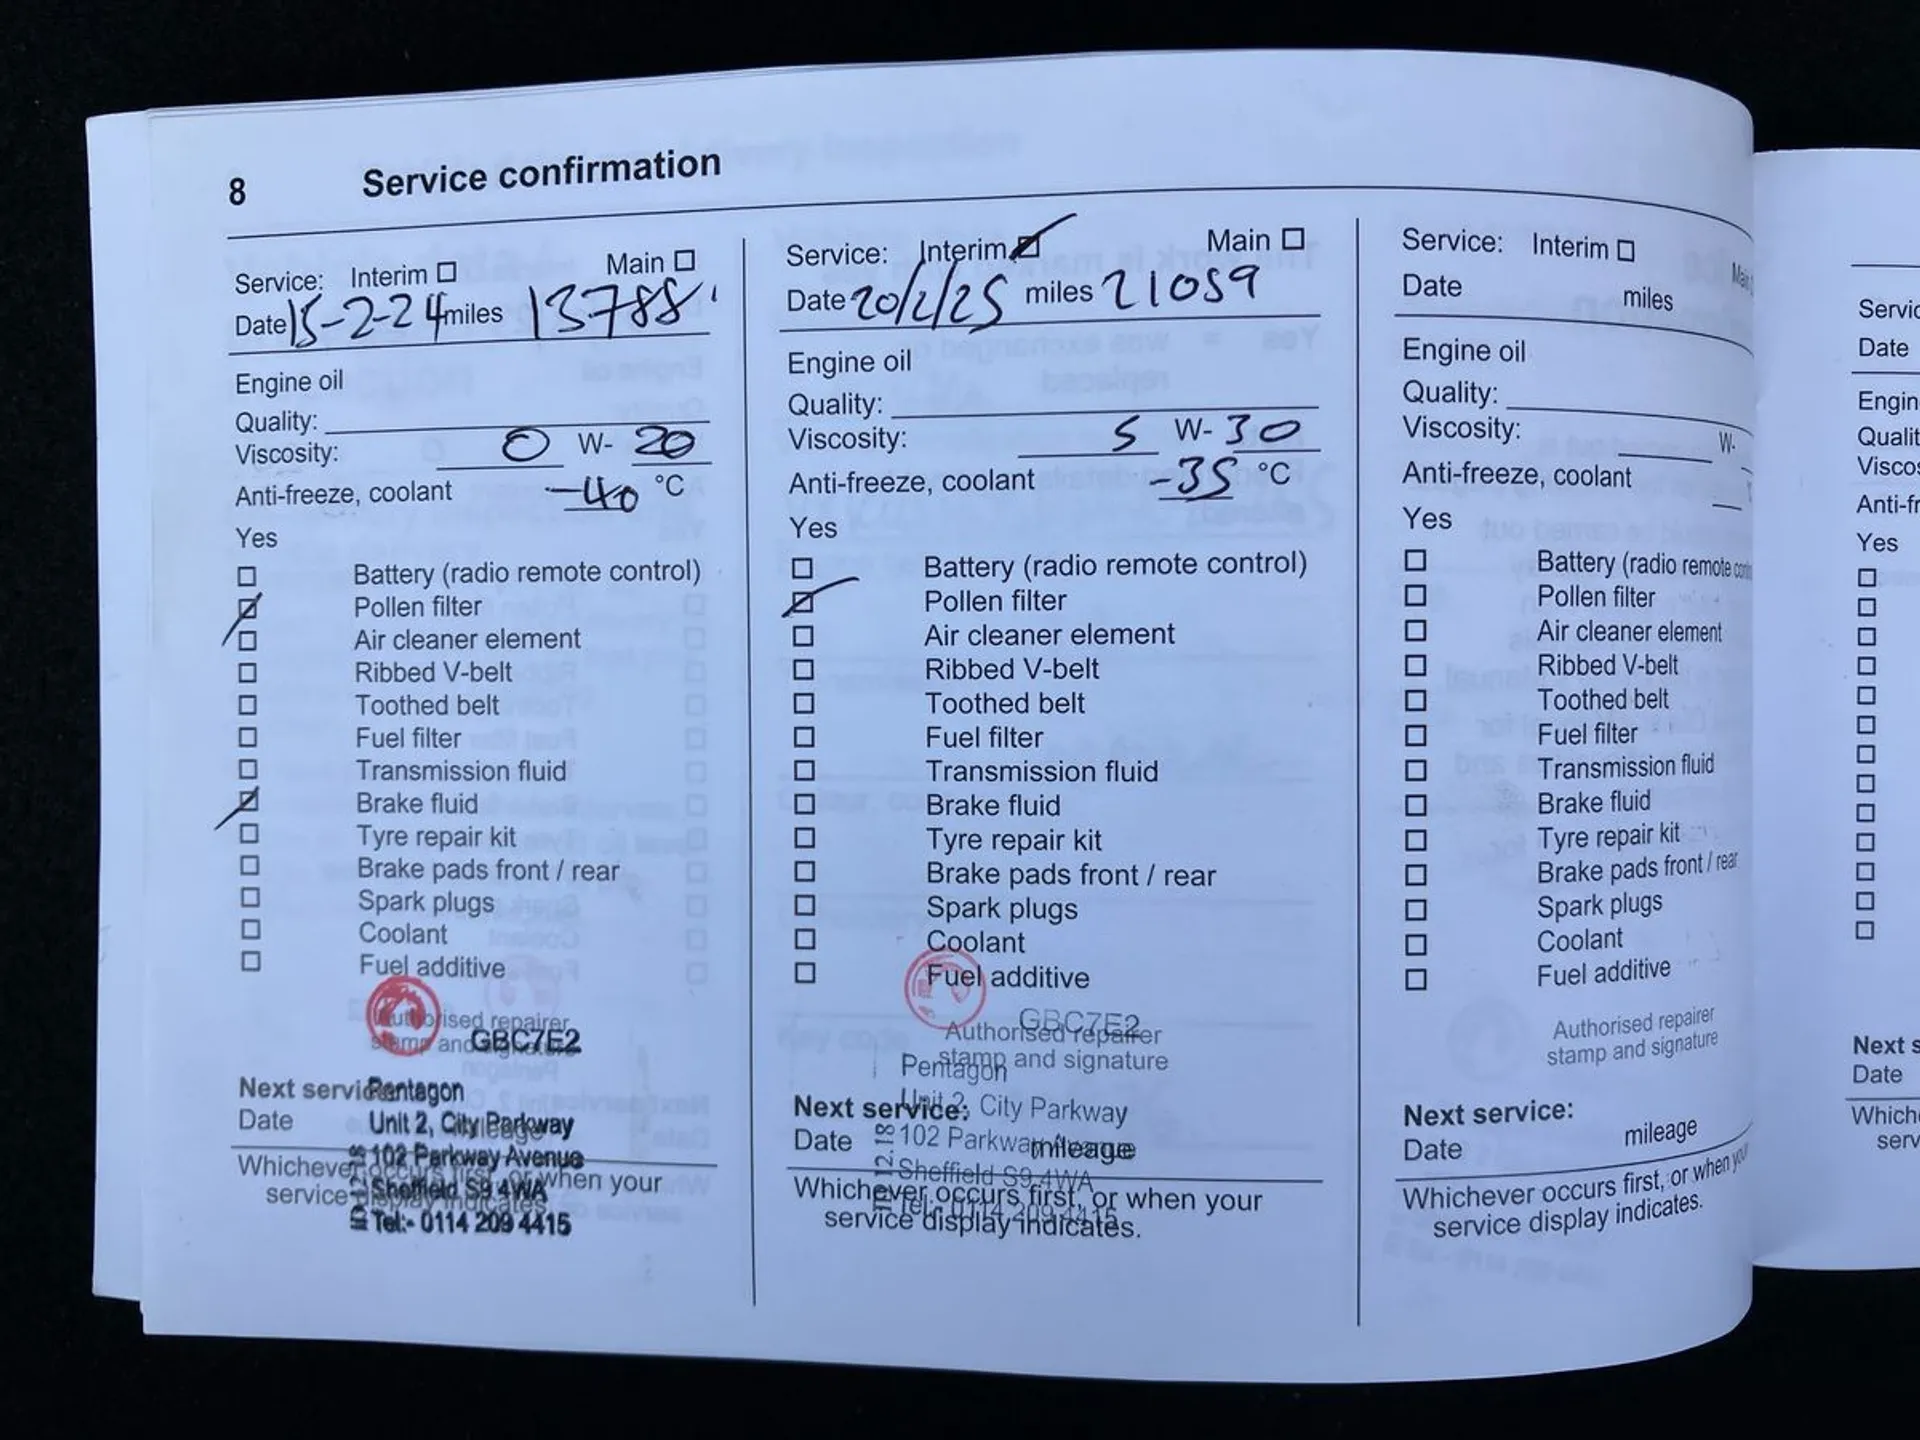 8 Service confirmation
Service: Interim Main
Date 15-2-24 miles 13788
Engine oil
Quality:
Viscosity: 0 W- 20
Anti-freeze, coolant -40 °C
Yes
Battery (radio remote control)
Pollen filter
Air cleaner element
Ribbed V-belt
Toothed belt
Fuel filter
Transmission fluid
Brake fluid
Tyre repair kit
Brake pads front / rear
Spark plugs
Coolant
Fuel additive
Authorised repairer
stamp and signature
GBC7E2
Next service
Date mileage
Pentagon
Unit 2, City Parkway
102 Parkway Avenue
Sheffield S9 4WA
Tel:- 0114 209 4415
Whichever occurs first, or when your
service display indicates.
Service: Interim Main
Date 20/2/25 miles 21059
Engine oil
Quality:
Viscosity: 5 W- 30
Anti-freeze, coolant -35 °C
Yes
Battery (radio remote control)
Pollen filter
Air cleaner element
Ribbed V-belt
Toothed belt
Fuel filter
Transmission fluid
Brake fluid
Tyre repair kit
Brake pads front / rear
Spark plugs
Coolant
Fuel additive
GBC7E2
Authorised repairer
stamp and signature
Pentagon
Unit 2, City Parkway
102 Parkway Avenue
Sheffield S9 4WA
Tel:- 0114 209 4415
Next service:
Date mileage
Whichever occurs first, or when your
service display indicates.
Service: Interim Main
Date miles
Engine oil
Quality:
Viscosity: W-
Anti-freeze, coolant
Yes
Battery (radio remote
Pollen filter
Air cleaner element
Ribbed V-belt
Toothed belt
Fuel filter
Transmission fluid
Brake fluid
Tyre repair kit
Brake pads front / rear
Spark plugs
Coolant
Fuel additive
Authorised repairer
stamp and signature
Next service:
Date mileage
Whichever occurs first, or when you
service display indicates.
Servic
Date
Engin
Qualit
Viscos
Anti-fr
Yes
Next s
Date
Whiche
serv